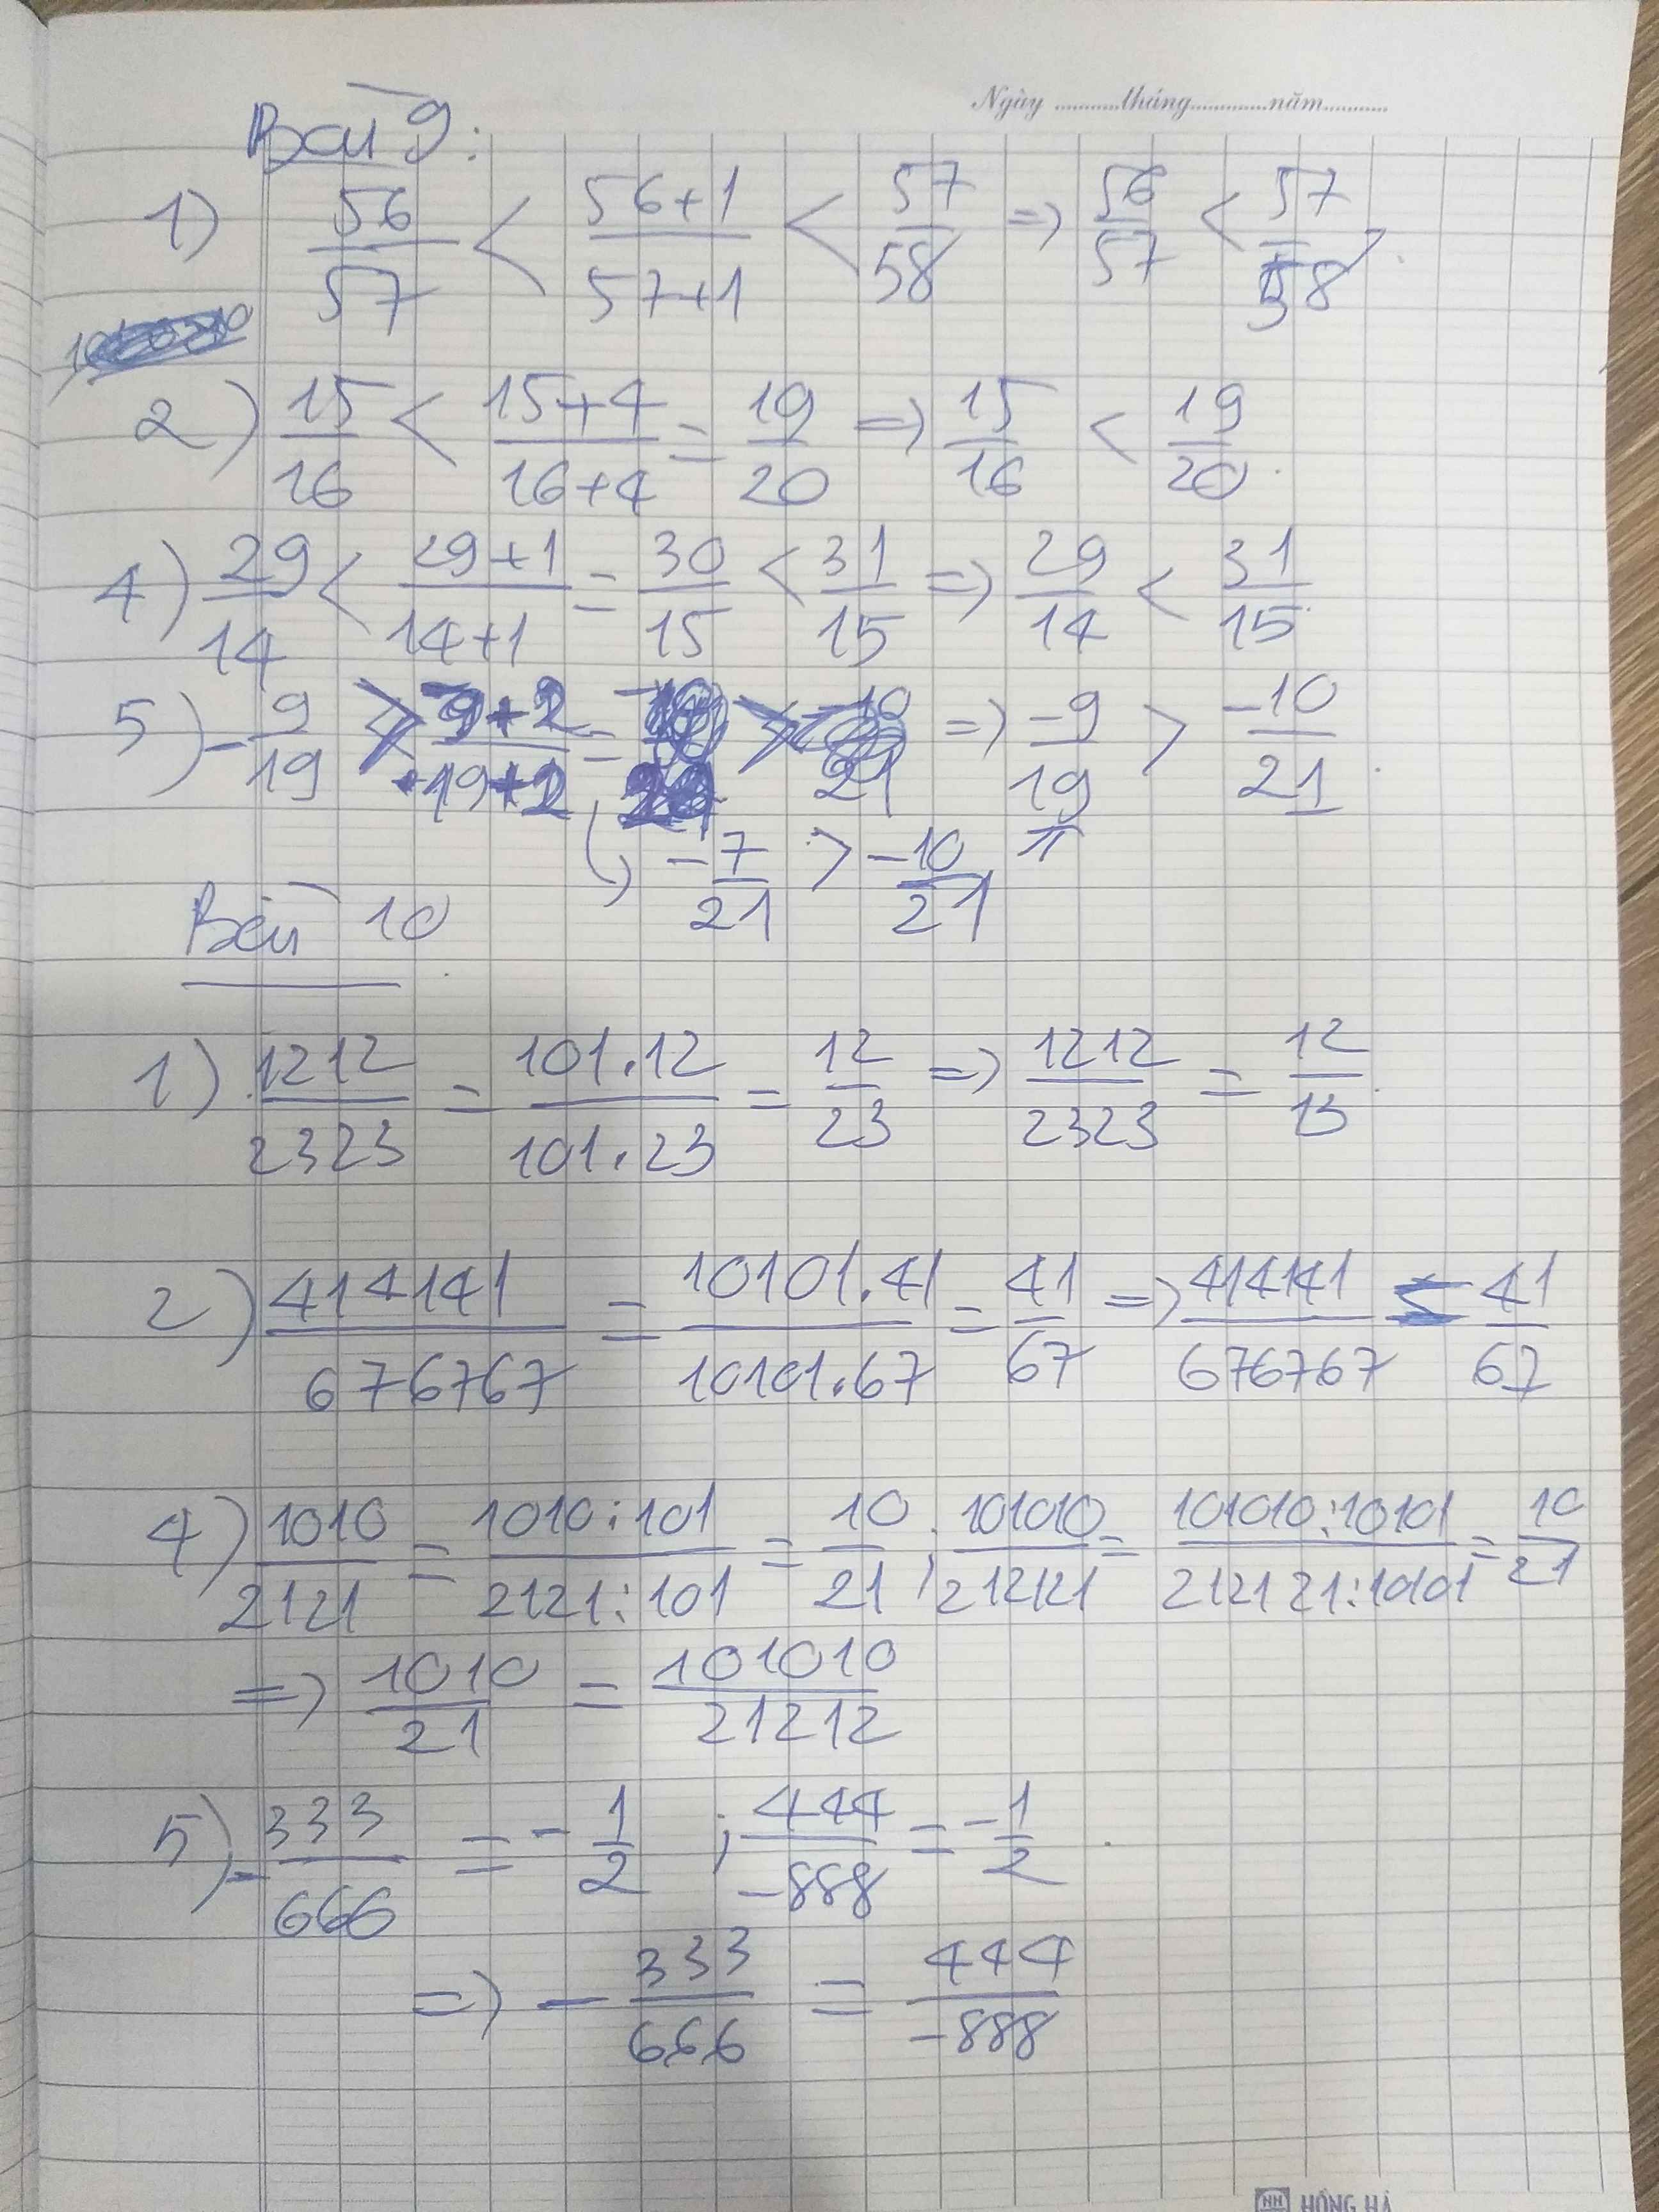 Ngày ...........tháng.............năm...........
Bài 9:
1) 56/57 < 56+1/57+1 < 57/58 => 56/57 < 57/58
2) 15/16 < 15+4/16+4 = 19/20 => 15/16 < 19/20.
4) 29/14 < 29+1/14+1 = 30/15 < 31/15 => 29/14 < 31/15
5) -9/19 > -9+2/19+2 => -9/19 > -10/21.
-7/21 > -10/21
Bài 10
1) 1212/2323 = 101.12/101.23 = 12/23 => 1212/2323 = 12/13.
2) 414141/676767 = 10101.41/10101.67 = 41/67 => 414141/676767 = 41/67
4) 1010/2121 = 1010:101/2121:101 = 10/21; 101010/212121 = 101010:10101/212121:10101 = 10/21
=> 1010/21 = 101010/21212
5) -333/666 = -1/2 ; 444/-888 = -1/2.
=> -333/666 = 444/-888
HH HỒNG HÀ